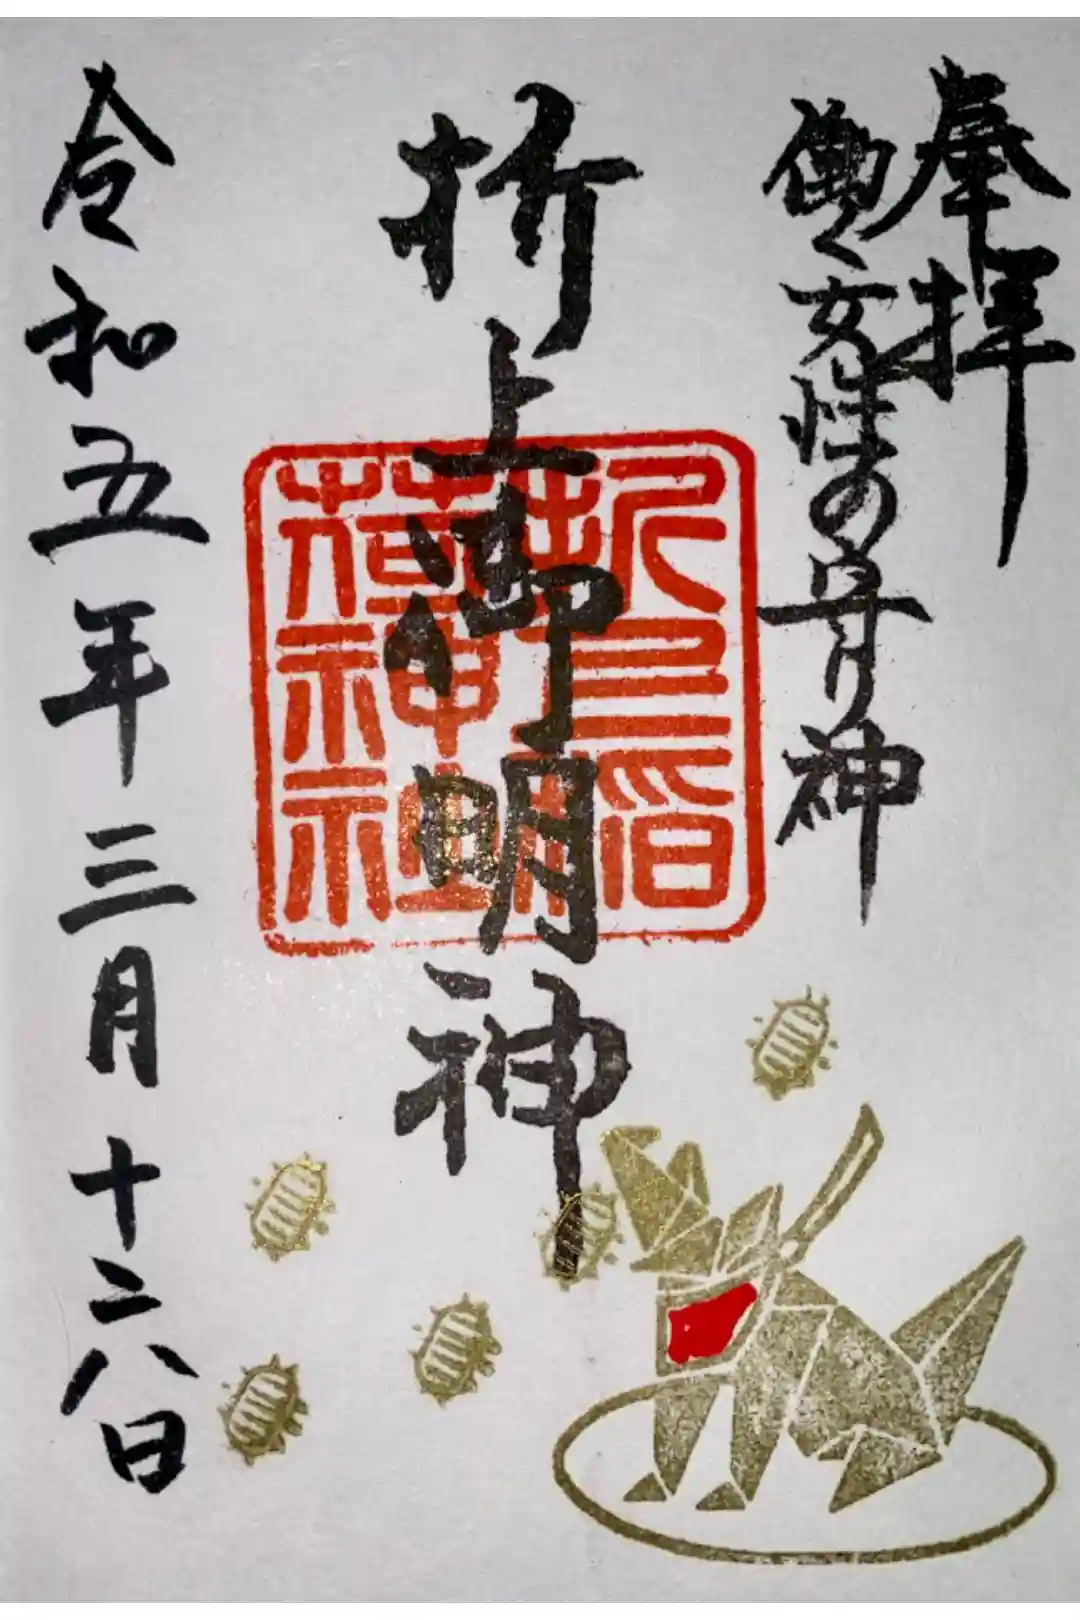 奉拝
働く女性の守り神
折上稲
荷神社
折上御明神
令和五年三月十二八日